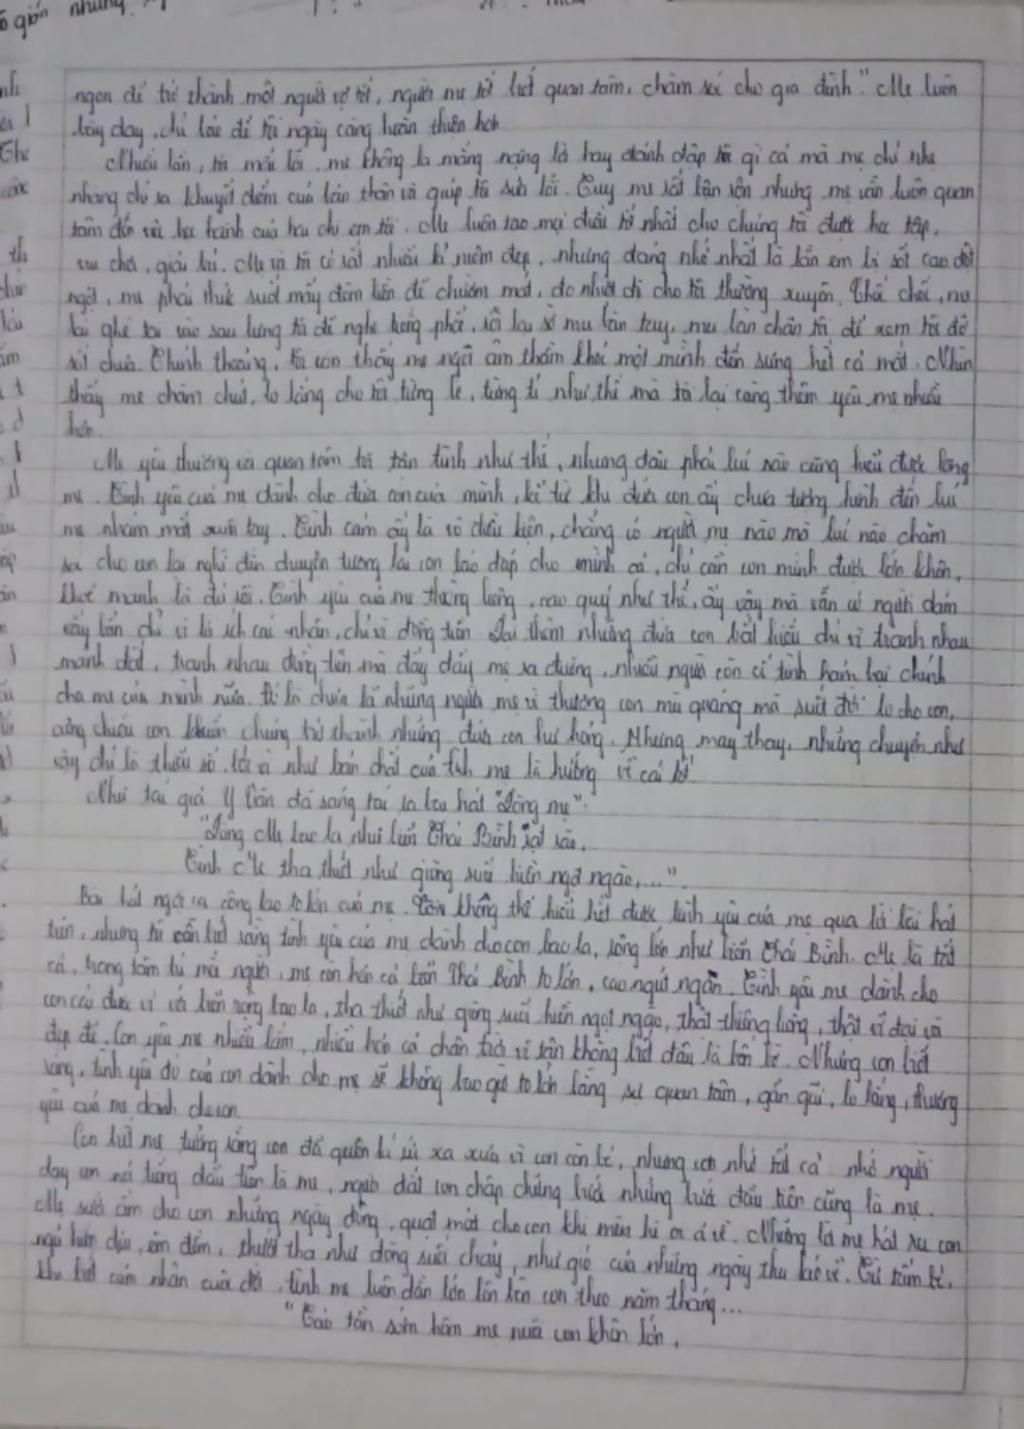 giản những
ngon để trở thành một người vợ tốt, người mẹ tốt biết quan tâm, chăm sóc cho gia đình." Mẹ luôn
dạy, chỉ bảo để tôi ngày càng hoàn thiện hơn
Nhiều lần, tôi mắc lỗi, mẹ không la mắng nặng lời hay đánh đập tôi gì cả mà mẹ chỉ nhẹ
nhàng chỉ ra khuyết điểm của bản thân và giúp tôi sửa lỗi. Tuy mẹ rất bận rộn nhưng mẹ vẫn luôn quan
tâm đến việc học hành của hai chị em tôi. Mẹ luôn tạo mọi điều tốt nhất cho chúng tôi được học tập,
vui chơi, giải trí. Mẹ và tôi có rất nhiều kỉ niệm đẹp, nhưng đáng nhớ nhất là lần em bị sốt cao đột
ngột, mẹ phải thức suốt mấy đêm liền để chườm mát, đo nhiệt độ cho tôi thường xuyên. Thế chưa, mẹ
lại ghé tai vào sau lưng tôi để nghe trong phổi, rồi lại sờ mu bàn tay, mu bàn chân tôi để xem tôi đỡ
sốt chưa. Thỉnh thoảng, tôi còn thấy mẹ ngồi âm thầm khóc một mình đến sưng hết cả mắt. Nhìn
thấy mẹ chăm chút, lo lắng cho tôi từng li, từng tí như thế mà tôi lại càng thêm yêu mẹ nhiều
hơn.
Mẹ yêu thương và quan tâm tôi tận tình như thế, nhưng đâu phải lúc nào cũng hiểu được lòng
mẹ. Tình yêu của mẹ dành cho đứa con của mình, kể từ khi đứa con ấy chưa tượng hình đến lúc
mẹ nhắm mắt xuôi tay. Tình cảm ấy là vô điều kiện, chẳng có người mẹ nào mà lúc nào chăm
sóc cho con lại nghĩ đến chuyện tương lai con báo đáp cho mình cả, chỉ cần con mình được lớn khôn,
khoẻ mạnh là đủ rồi. Tình yêu của mẹ thiêng liêng, cao quý như thế, ấy vậy mà vẫn có người dám
vấy bẩn chỉ vì lợi ích cá nhân, chỉ vì đồng tiền. Lại thêm những đứa con bất hiếu chỉ vì tranh nhau
mảnh đất, tranh nhau đồng tiền mà đẩy đẩy mẹ ra đường, nhiều người còn cố tình hãm hại chính
cha mẹ của mình nữa. Đó là chưa kể những người mẹ vì thương con mù quáng mà suốt đời lo cho con,
cưng chiều con khiến chúng trở thành những đứa con hư hỏng. Nhưng may thay, những chuyện như
vậy chỉ là thiểu số bởi vì như bản chất của tình mẹ là hướng về cái tốt.
Như tác giả Y Vân đã sáng tác ra bài hát "Lòng mẹ":
"Lòng Mẹ bao la như biển Thái Bình rạt rào,
Tình Mẹ tha thiết như giòng suối hiền ngọt ngào,...".
Bài hát ngợi ca công lao to lớn của mẹ. Con không thể hiểu hết được tình yêu của mẹ qua lời bài hát
trên, nhưng tôi vẫn biết rằng tình yêu của mẹ dành cho con bao la, rộng lớn như biển Thái Bình. Mẹ là tất
cả, trong tâm trí mỗi người, mẹ còn hơn cả biển Thái Bình to lớn, cao ngút ngàn. Tình yêu mẹ dành cho
con cái được ví với biển rộng bao la, tha thiết như giòng suối hiền ngọt ngào, thật thiêng liêng, thật vĩ đại và
đẹp đẽ. Con yêu mẹ nhiều lắm, nhiều hơn cả chân trời vô tận không biết đâu là bến bờ. Nhưng con biết
rằng, tình yêu đó của con dành cho mẹ sẽ không bao giờ to lớn bằng sự quan tâm, gần gũi, lo lắng, thương
yêu của mẹ dành cho con.
Con biết mẹ tưởng rằng con đã quên kí ức xa xưa vì con còn bé, nhưng con nhớ tất cả nhớ người
dạy con nói tiếng đầu tiên là mẹ, người dắt con chập chững bước những bước đầu tiên cũng là mẹ.
Mẹ sưởi ấm cho con những ngày đông, quạt mát cho con khi mùa hè oi ả về. Những lời mẹ hát ru con
ngủ hiền dịu, êm đềm, thướt tha như dòng suối chảy, như gió của những ngày thu kéo về. Từ tấm bé,
khi biết cảm nhận cuộc đời, tình mẹ luôn dần lớn lên bên con theo năm tháng...
"Tảo tần sớm hôm mẹ nuôi con khôn lớn,